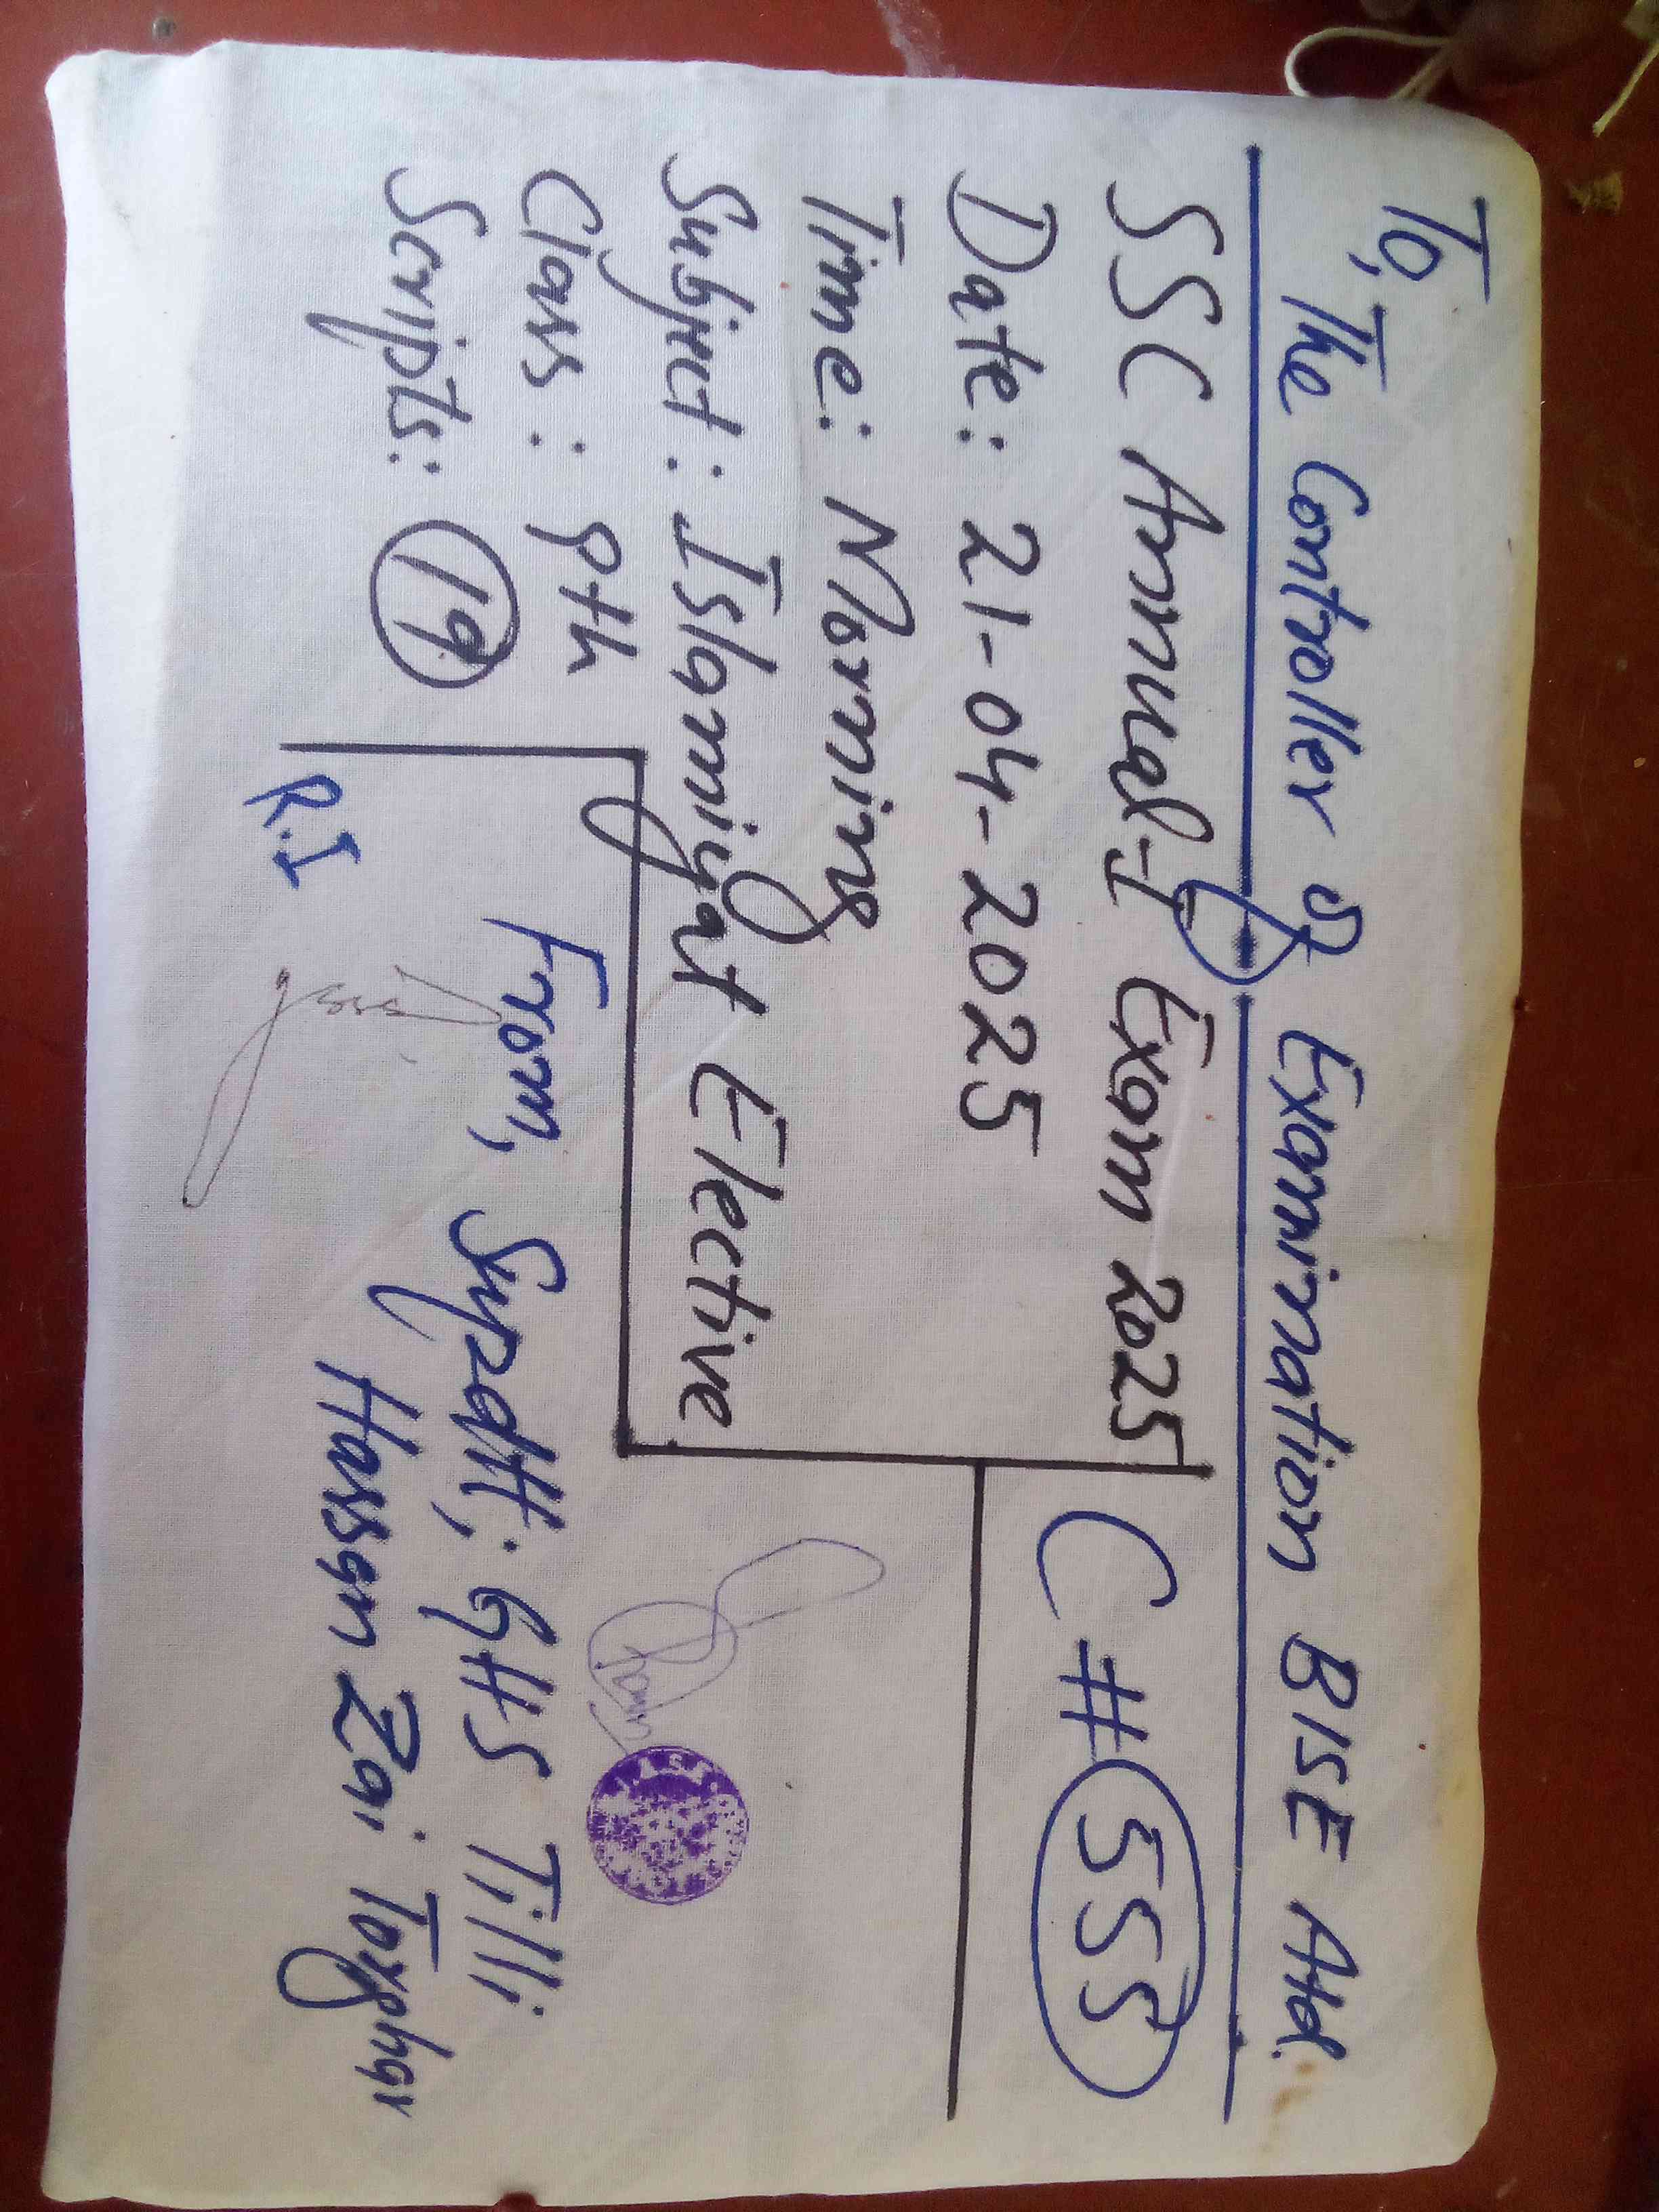 To, The Controller of Examination BISE Atd.
SSC Annual-I Exam 2025
C # 555
Date: 21-04-2025
Time: Morning
Subject: Islamiyat Elective
Class: 9th
Scripts: 19
From, Supdtt; GHS Tilli
Hassan Zai Torghar
R.I